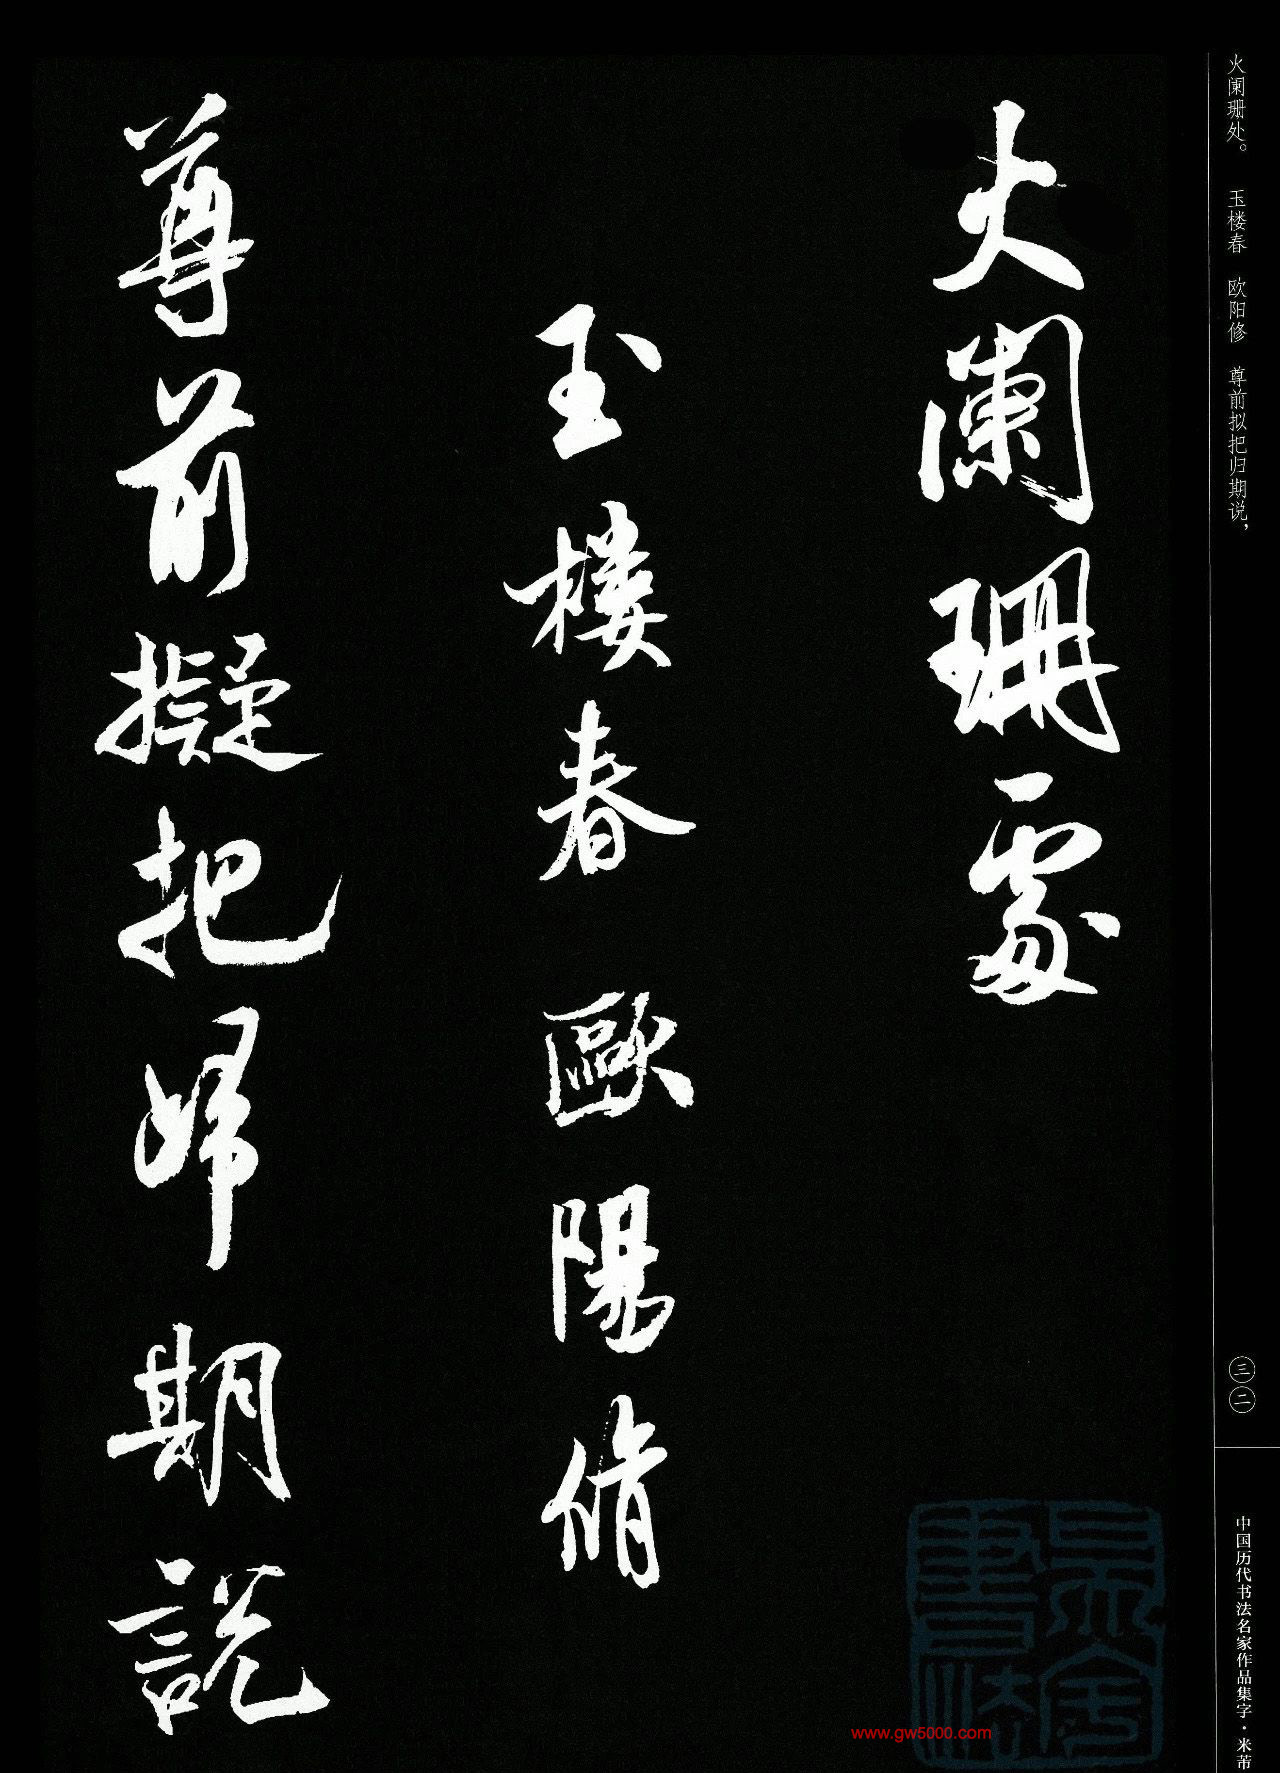 火阑珊处。 玉楼春 欧阳修 尊前拟把归期说，
三二
中国历代书法名家作品集字·米芾
火闌珊處
玉樓春 歐陽脩
尊前擬把歸期說
www.gw5000.com